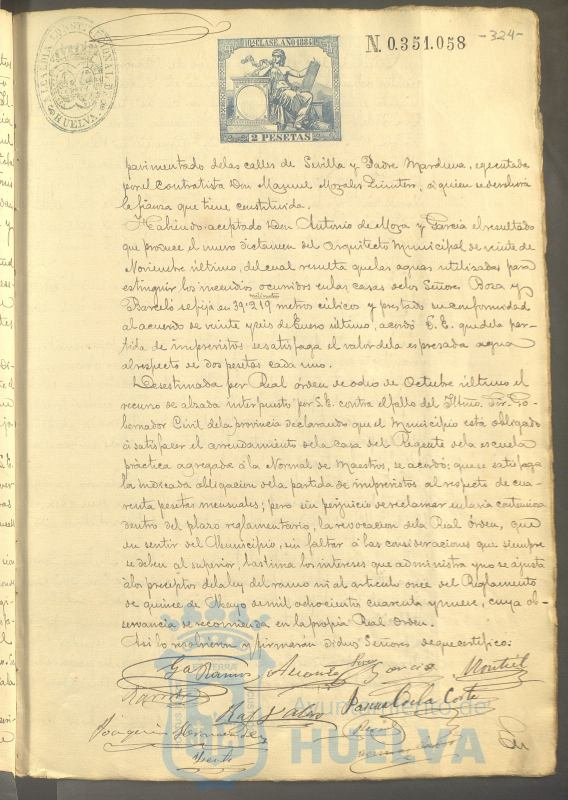 10ª CLASE. AÑO 1884
N. 0.351.058
-324-
ALCALDIA CONSTITUCIONAL D HUELVA
2 PESETAS
pavimentado de las calles de Sevilla y Padre Marchena, ejecutado
por el Contratista Don Manuel Morales Quintero, a quien se devolverá
la fianza que tiene constituida.
Habiendo aceptado Don Antonio de Mora y Garcia el resultado
que produce el nuevo dictamen del Arquitecto Municipal de veinte de
Noviembre último, del cual resulta que las aguas utilizadas para
extinguir los incendios ocurridos en las casas de los Señores Boza y
Barceló se fija en 39.219 metros cúbicos y prestado su conformidad
al acuerdo de veinte y seis de Enero último, acordó S.E. que de la par-
tida de imprevistos se satisfaga el valor de la expresada agua
al respecto de dos pesetas cada uno.
Desestimada por Real órden de ocho de Octubre último el
recurso de alzada interpuesto por S.E. contra el fallo del Iltmo. Sor. Go-
bernador Civil de la provincia declarando que el Municipio está obligado
á satisfacer el arrendamiento de la casa del Regente de la escuela
práctica agregada á la Normal de Maestros, se acordó; que se satisfaga
la indicada obligacion de la partida de imprevistos al respecto de cua-
renta pesetas mensuales; pero sin perjuicio de reclamar en la via contenciosa
dentro del plazo reglamentario, la revocacion de la Real Órden, que
en sentir del Municipio, sin faltar á las consideraciones que siempre
se deben al superior, lastima los intereses que administra y no se ajusta
á los preceptos de la ley del ramo ni al articulo once del Reglamento
de quince de Mayo de mil ochocientos cuarenta y nueve, cuya ob-
servancia se recomienda en la propia Real Órden.
Asi lo resolvieron y firmarán dichos Señores de que certifico:
Garcia Montiel
Joaquin Hernandez
Ayuntamiento de
HUELVA